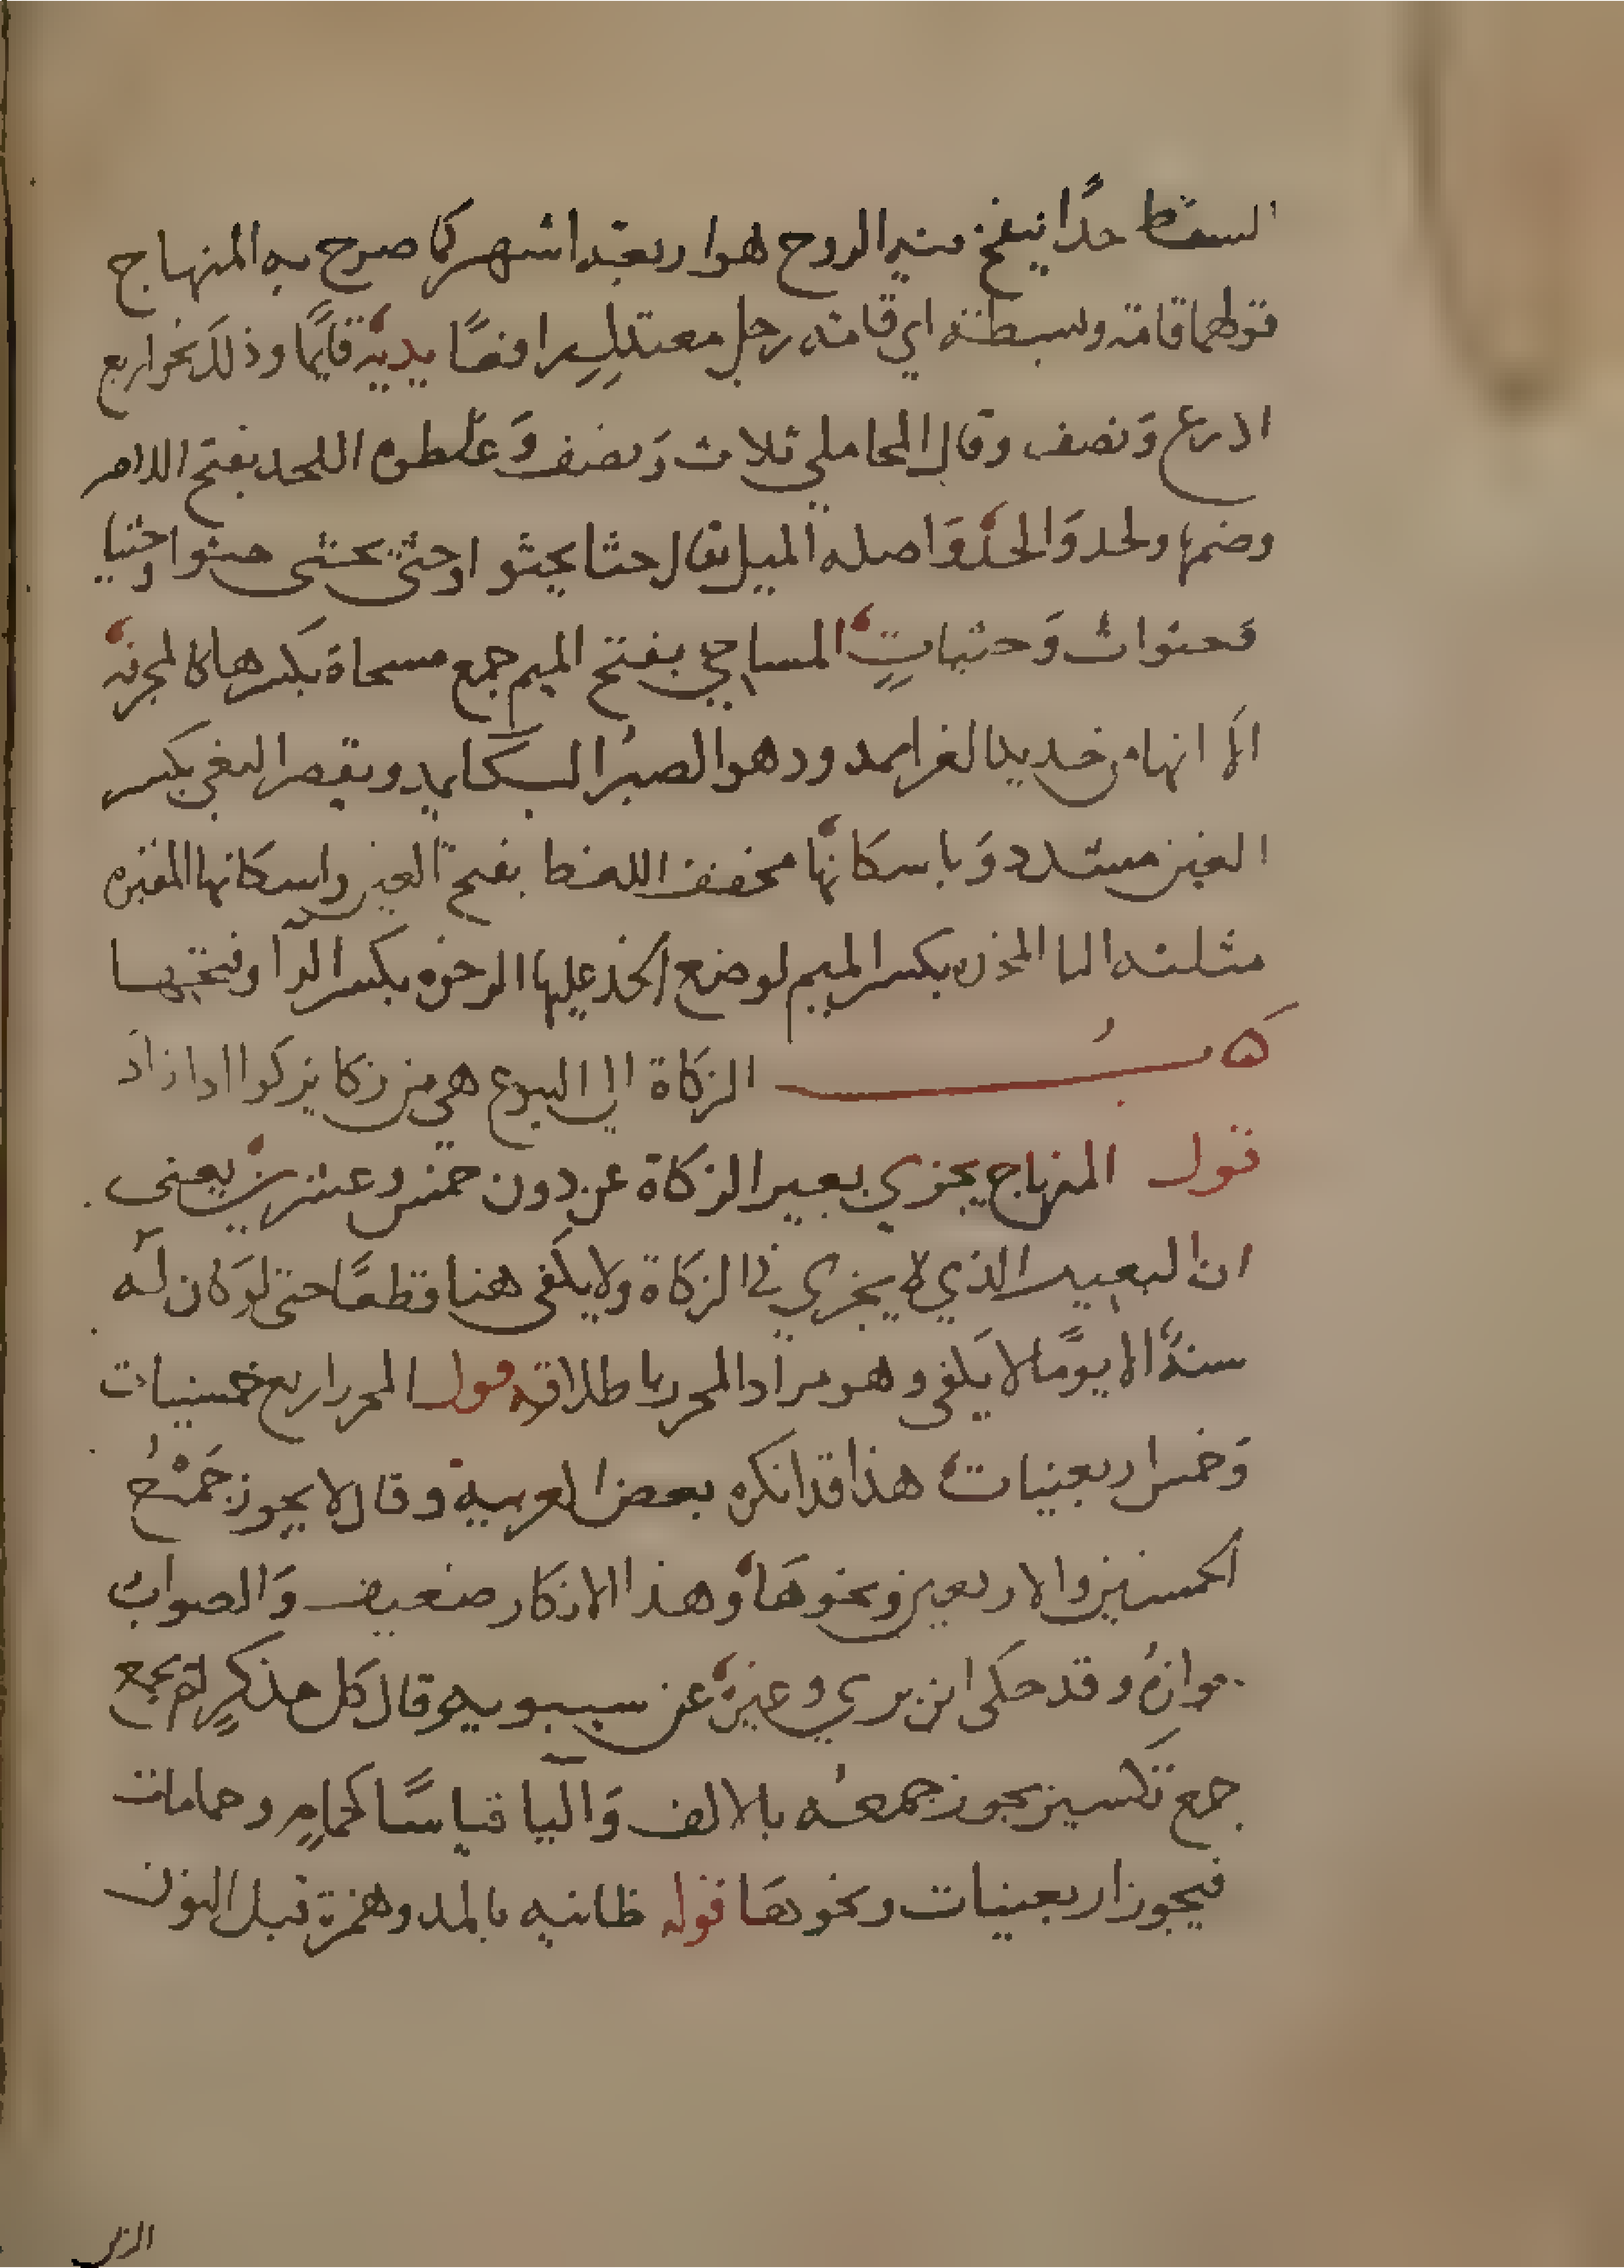 السقط حدًا ينفخ فيه الروح هو اربعة اشهر كما صرح به المنهاج
قولهما قامة وبسطة اي قامة رجل معتدلٍ رافعًا يديه قايمًا وذلك نحو اربع
اذرع وَنصف وقال المحاملي ثلاث وَنصف وَغلطوه اللحد بفتح اللام
وضمها ولحد وَالحد وَاصله الميل يقال حثا يحثوا وحثى يحثى حثوا وحثيا
وَحثوات وَحثياتٍ المساحي بفتح الميم جمع مسحاة بكسرها كالمجرفة
الا انها من حديد العزا بمدود هو الصبر البكا يمد ويقصر النعي بكسر
العين مشدد وَباسكانها مخفف اللغط بفتح الغين واسكانها المقبرة
مثلثه البا المخده بكسر الميم لوضع الخد عليها الرخوة بكسر الرا وفتحها
كتابُ الزكاة الى البيوع هي من زكا يزكوا اذا زاد
قول المنهاج يجزي بعير الزكاة عن دون خمس وعشرين يعنى
ان البعير الذي لا يجزي في الزكاة ولا يكفى هنا قطعًا حتى لو كان له
سنة الا يومًا لا يكفى وهو مراد المحرر باطلاقه قول المحرر اربع خمسينيات
وَخمس اربعينيات هذا قد انكره بعض العربية وقال لا يجوز جَمْعُ
الخمسين والاربعين ونحوهَا وهذا الانكار ضعيف وَالصواب
جوازهُ وقد حكى ابن بري وغيره عن سيبويه وقال كل مذكرٍ لم يجمع
جمع تكسير يجوز جمعه بالالف وَاليا قياسًا كحمامٍ وحمامات
فيجوز اربعينيات ونحوهَا قوله ظانيه بالمد وهمزة قبل النون